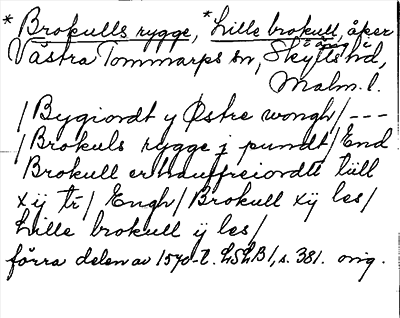 * Brokulls rygge, * Lille brokull, åker
Västra Tommarps sn, Skytts hd,
Malm. l.
/ Bygiordt y Østre wongh / ---
/ Brokuls rygge j pundt / End
Brokull er hauffreiordtt till
xij tr / Engh / Brokull xij les /
Lille brokull ij les /
förra delen av 1570-t. LSLB 1, s. 381. orig.